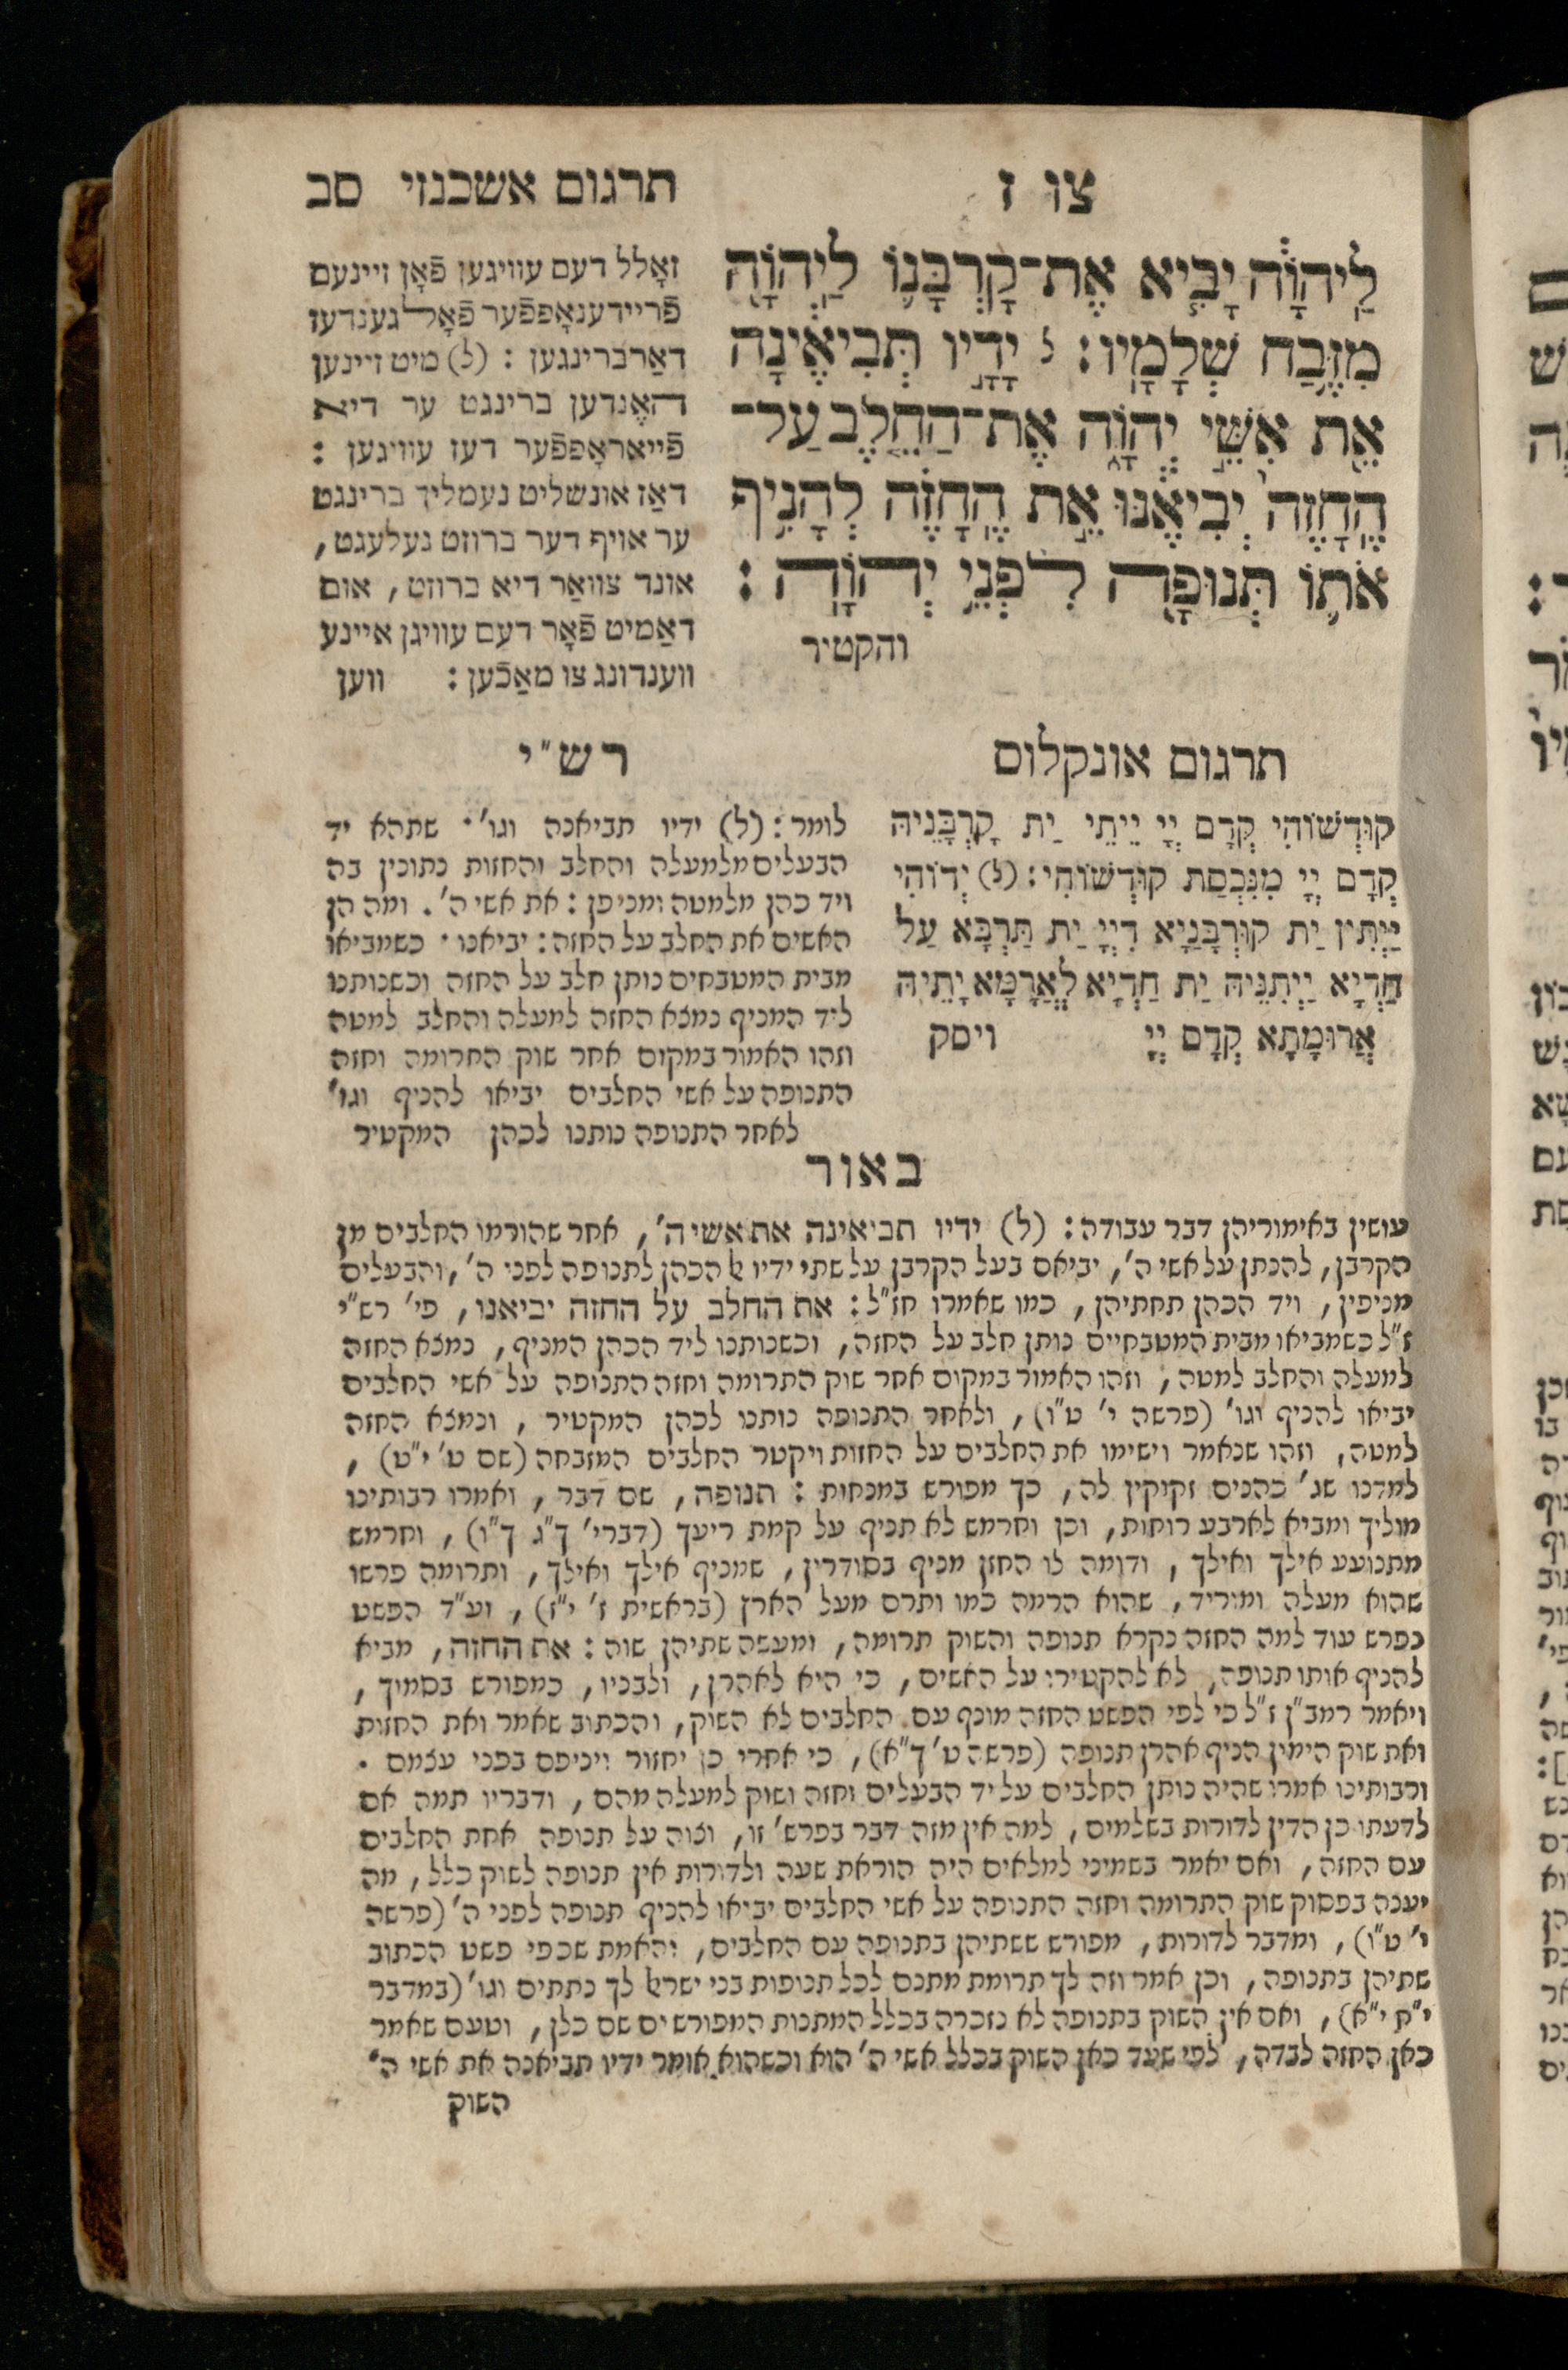 צו ז
תרגום אשכנזי סב
לַֽיהוָ֔ה יָבִ֧יא אֶת־קָרְבָּנ֛וֹ לַיהוָ֖ה
מִזֶּ֥בַח שְׁלָמָֽיו: ל יָדָ֣יו תְּבִיאֶ֔ינָה
אֵ֖ת אִשֵּׁ֣י יְהוָ֑ה אֶת־הַחֵ֤לֶב עַל־
הֶֽחָזֶה֙ יְבִיאֶ֔נּוּ אֵ֣ת הֶֽחָזֶ֗ה לְהָנִ֥יף
אֹת֛וֹ תְּנוּפָ֖ה לִפְנֵ֥י יְהוָֽה:
והקטיר
זאָלל דעם עוויגען פֿאָן זיינעם
פֿריידענאָפּפֿער פֿאָללגענדעז
דאַרברינגען : (ל) מיט זיינען
האֶנדען ברינגט ער דיא
פֿייאראָפּפֿער דעז עוויגען :
דאַז אונשליט נעמליך ברינגט
ער אויף דער ברוזט געלעגט,
אונד צוואַר דיא ברוזט, אום
דאַמיט פֿאָר דעם עוויגן איינע
ווענדונג צו מאַכֿען : ווען
תרגום אונקלוס
קוּדְשׁוֹהִי קֳדָם יְיָ יֵיתֵי יַת קָרְבָּנֵיהּ
קֳדָם יְיָ מִנִּכְסַת קוּדְשׁוֹהִי: (ל) יְדוֹהִי
יַיְתִּין יַת קוּרְבָּנַיָּא דַיְיָ יַת תַּרְבָּא עַל
חַדְיָא יַיְתִנֵּיהּ יַת חַדְיָא לְאֲרָמָא יָתֵיהּ
אֲרוּמָתָא קֳדָם יְיָ ויסק
רש״י
לומר: (ל) ידיו תביאנה וגו'· שתהא יד
הבעלים מלמעלה והחלב והחזות נתונין בה
ויד כהן מלמטה ומניפן: את אשי ה'. ומה הן
האשים את החלב על החזה: יביאנו· כשמביאו
מבית המטבחים נותן חלב על החזה וכשנותנו
ליד המניף נמצא החזה למעלה והחלב למטה
וזהו האמור במקום אחר שוק התרומה וחזה
התנופה על אשי החלבים יביאו להניף וגו'
לאחר התנופה נותנו לכהן המקטיר
באור
עושין באימוריהן דבר עבודה: (ל) ידיו תביאינה את אשי ה', אחר שהורמו החלבים מן
הקרבן, להנתן על אשי ה', יביאם בעל הקרבן על שתי ידיו אל הכהן לתנופה לפני ה', והבעלים
מניפין, ויד הכהן תחתיהן, כמו שאמרו חז״ל: את החלב על החזה יביאנו, פי' רש״י
ז״ל כשמביאו מבית המטבחיים נותן חלב על החזה, וכשנותנו ליד הכהן המניף, נמצא החזה
למעלה והחלב למטה, וזהו האמור במקום אחר שוק התרומה וחזה התנופה על אשי החלבים
יביאו להניף וגו' (פרשה י' ט״ו), ולאחר התנופה נותנו לכהן המקטיר, ונמצא החזה
למטה, וזהו שנאמר וישימו את החלבים על החזות ויקטר החלבים המזבחה (שם ט' י״ט),
למדנו שג' כהנים זקוקין לה, כך מפורש במנחות: תנופה, שם דבר, ואמרו רבותינו
מוליך ומביא לארבע רוחות, וכן וחרמש לא תניף על קמת ריעך (דברי' ך״ג ך״ו), וחרמש
מתנועע אילך ואילך, ודומה לו החזן מניף בסודרין, שמניף אילך ואילך, ותרומה פרשו
שהוא מעלה ומוריד, שהוא הרמה כמו ותרם מעל הארץ (בראשית ז' י״ז), וע״ד הפשט
נפרש עוד למה החזה נקרא תנופה והשוק תרומה, ומעשה שתיהן שוה: את החזה, מביא
להניף אותו תנופה, לא להקטירו על האשים, כי היא לאהרן, ולבניו, כמפורש בסמוך,
ויאמר רמב״ן ז״ל כי לפי הפשט החזה מונף עם החלבים לא השוק, והכתוב שאמר ואת החזות
ואת שוק הימין הניף אהרן תנופה (פרשה ט' ך״א), כי אחרי כן יחזור ויניפם בפני עצמם.
ורבותינו אמרו שהיה נותן החלבים על יד הבעלים וחזה ושוק למעלה מהם, ודבריו תמה אם
לדעתו כן הדין לדורות בשלמים, למה אין מזה דבר בפרש' זו, וצוה על תנופה אחת החלבים
עם החזה, ואם יאמר בשמיני למלאים היה הוראת שעה ולדורות אין תנופה לשוק כלל, מה
יענה בפסוק שוק התרומה וחזה התנופה על אשי החלבים יביאו להניף תנופה לפני ה' (פרשה
י' ט״ו), ומדבר לדורות, מפורש ששתיהן בתנופה עם החלבים, והאמת שכפי פשט הכתוב
שתיהן בתנופה, וכן אמר וזה לך תרומת מתנם לכל תנופות בני ישראל לך נתתים וגו' (במדבר
י״ח י״א), ואם אין השוק בתנופה לא נזכרה בכלל המתנות המפורשים שם כלן, וטעם שאמר
כאן החזה לבדה, לפי שעד כאן השוק בכלל אשי ה' הוא וכשהוא אומר ידיו תביאנה את אשי ה'
השוק